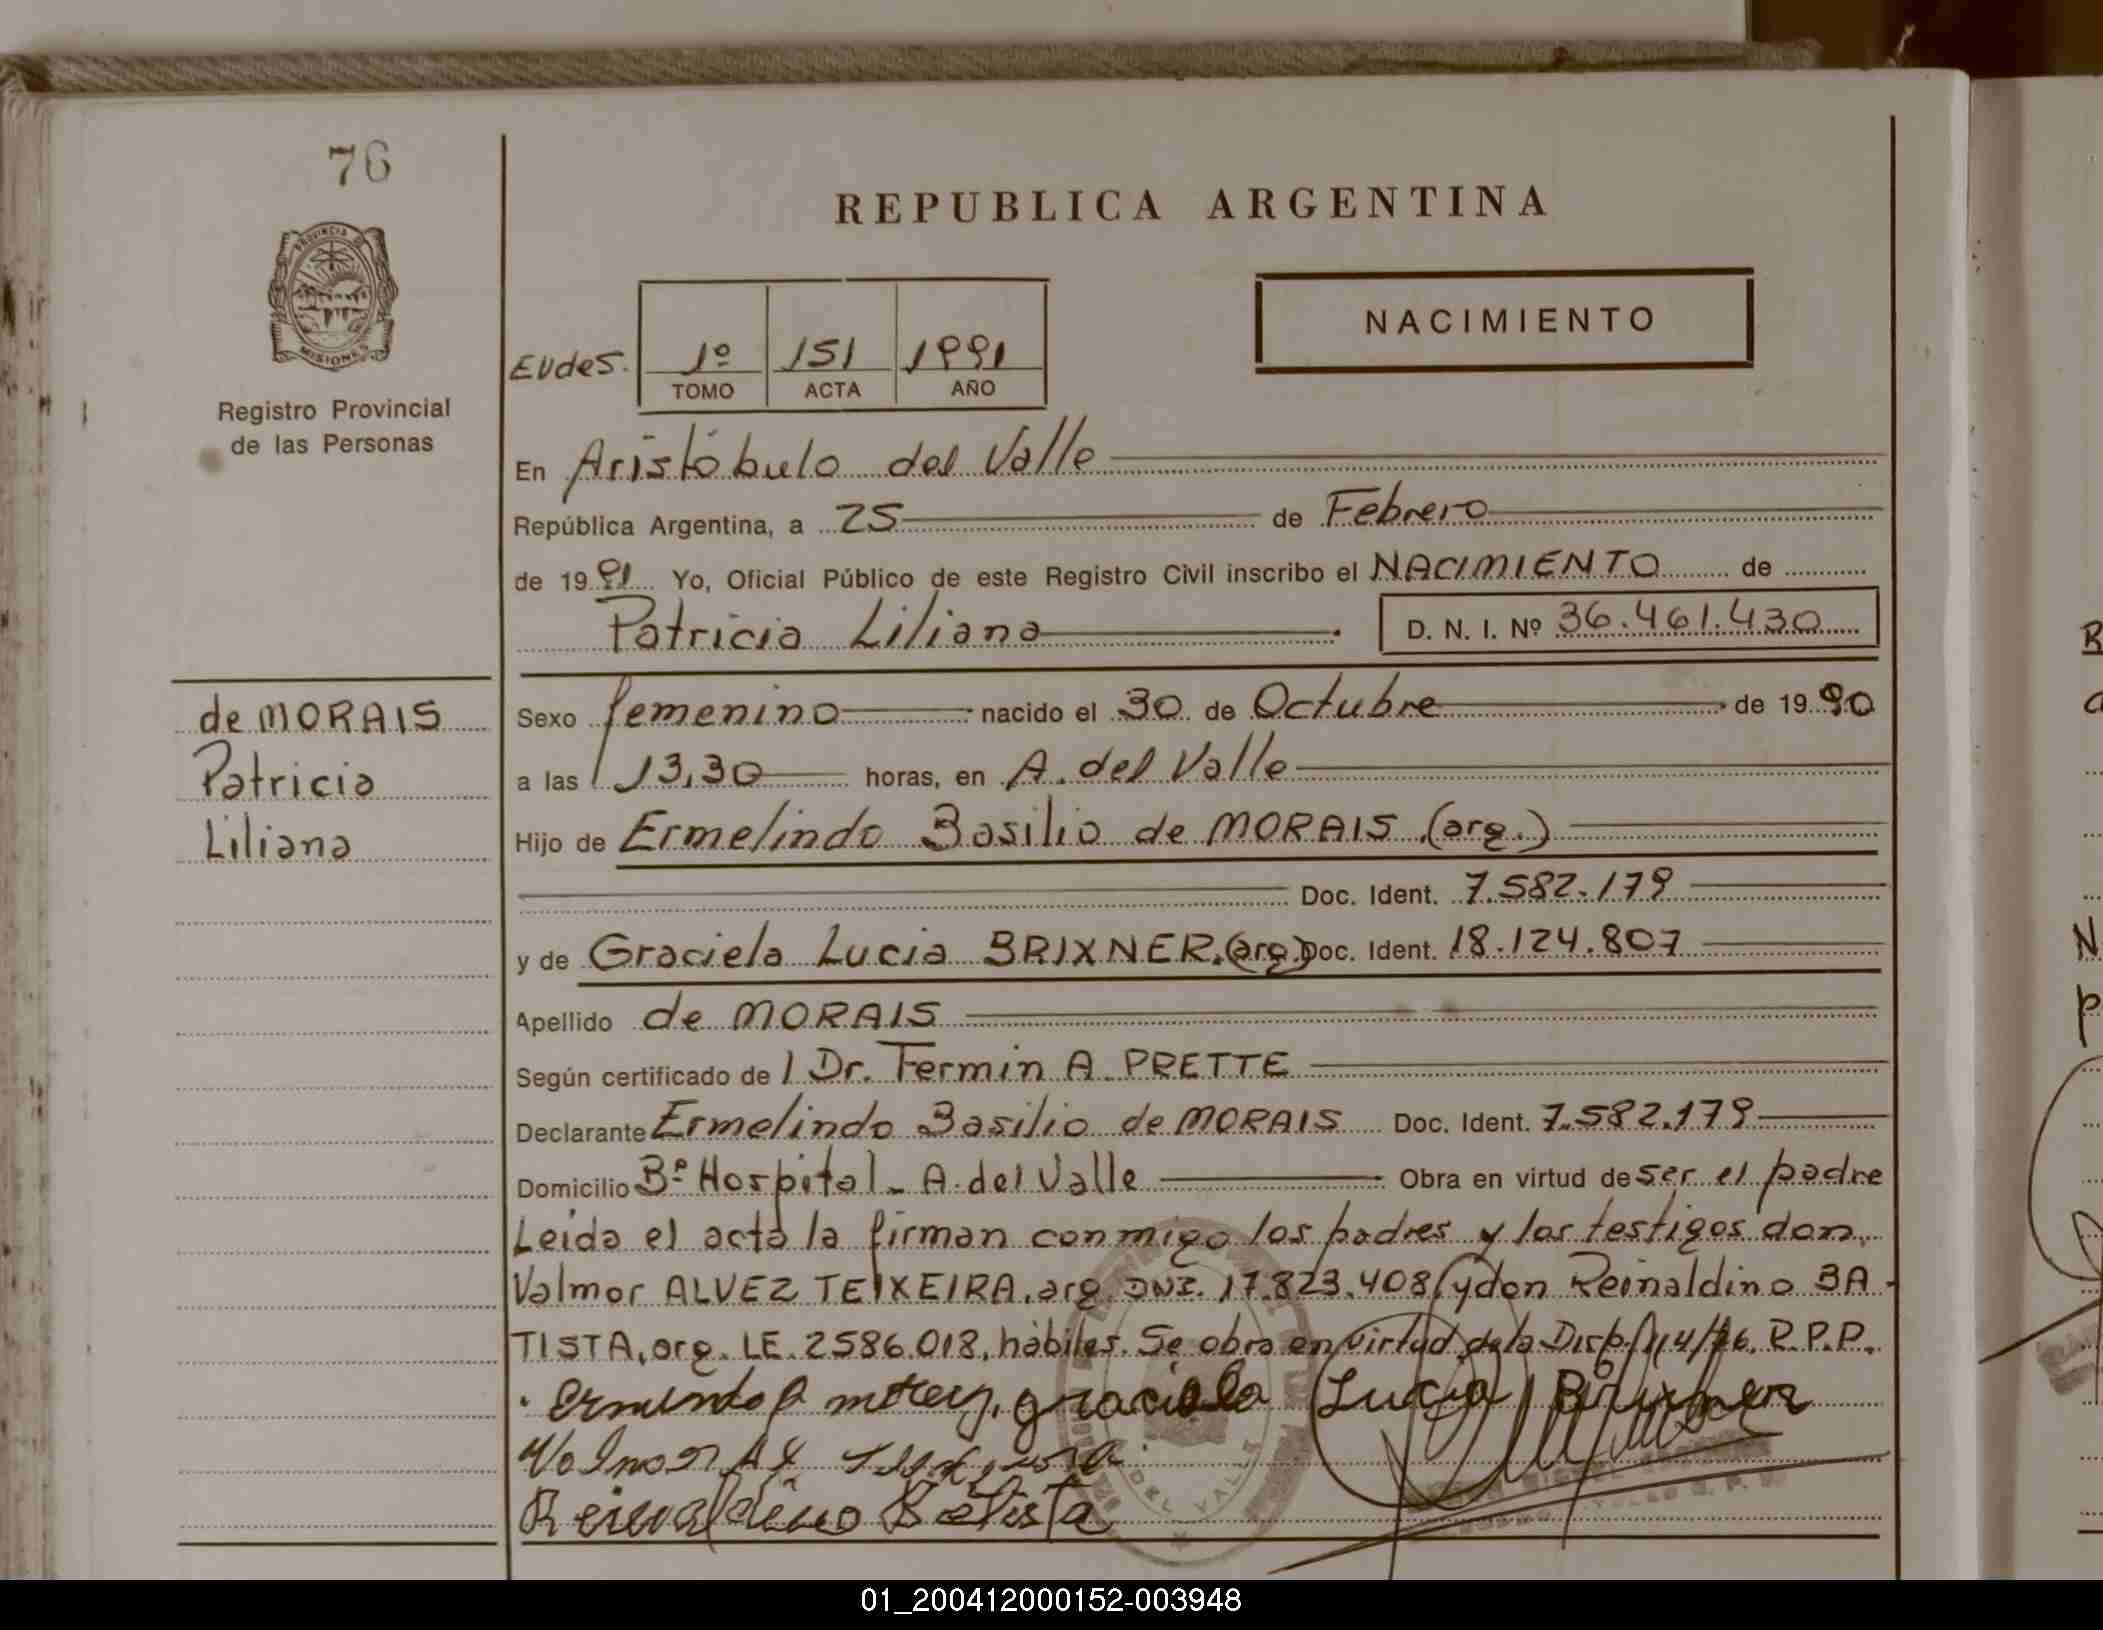 76
REPUBLICA ARGENTINA
PROVINCIA DE
MISIONES
Registro Provincial
de las Personas
EVdes.
1º 151 1991
TOMO ACTA AÑO
NACIMIENTO
En Aristóbulo del Valle
República Argentina, a 25 de Febrero
de 1991 Yo, Oficial Público de este Registro Civil inscribo el NACIMIENTO de
Patricia Liliana D. N. I. Nº 36.461.430
de MORAIS
Patricia
Liliana
Sexo femenino nacido el 30 de Octubre de 1990
a las 13,30 horas, en A. del Valle
Hijo de Ermelindo Basilio de MORAIS (arg.)
Doc. Ident. 7.582.179
y de Graciela Lucia BRIXNER.(arg.) Doc. Ident. 18.124.807
Apellido de MORAIS
Según certificado de l Dr. Fermin A. PRETTE
Declarante Ermelindo Basilio de MORAIS Doc. Ident. 7.582.179
Domicilio Bº Hospital - A. del Valle Obra en virtud de ser el padre
Leida el acta la firman conmigo los padres y los testigos don
Valmor ALVEZ TEIXEIRA, arg. DNI. 17.823.408, y don Reinaldino BA-
TISTA, arg. LE. 2586.018, hábiles. Se obra en virtud de la Disp. 114/76. R.P.P.
graciela Lucia Brixner
Reinaldino Batista
DEL VALLE
01_200412000152-003948